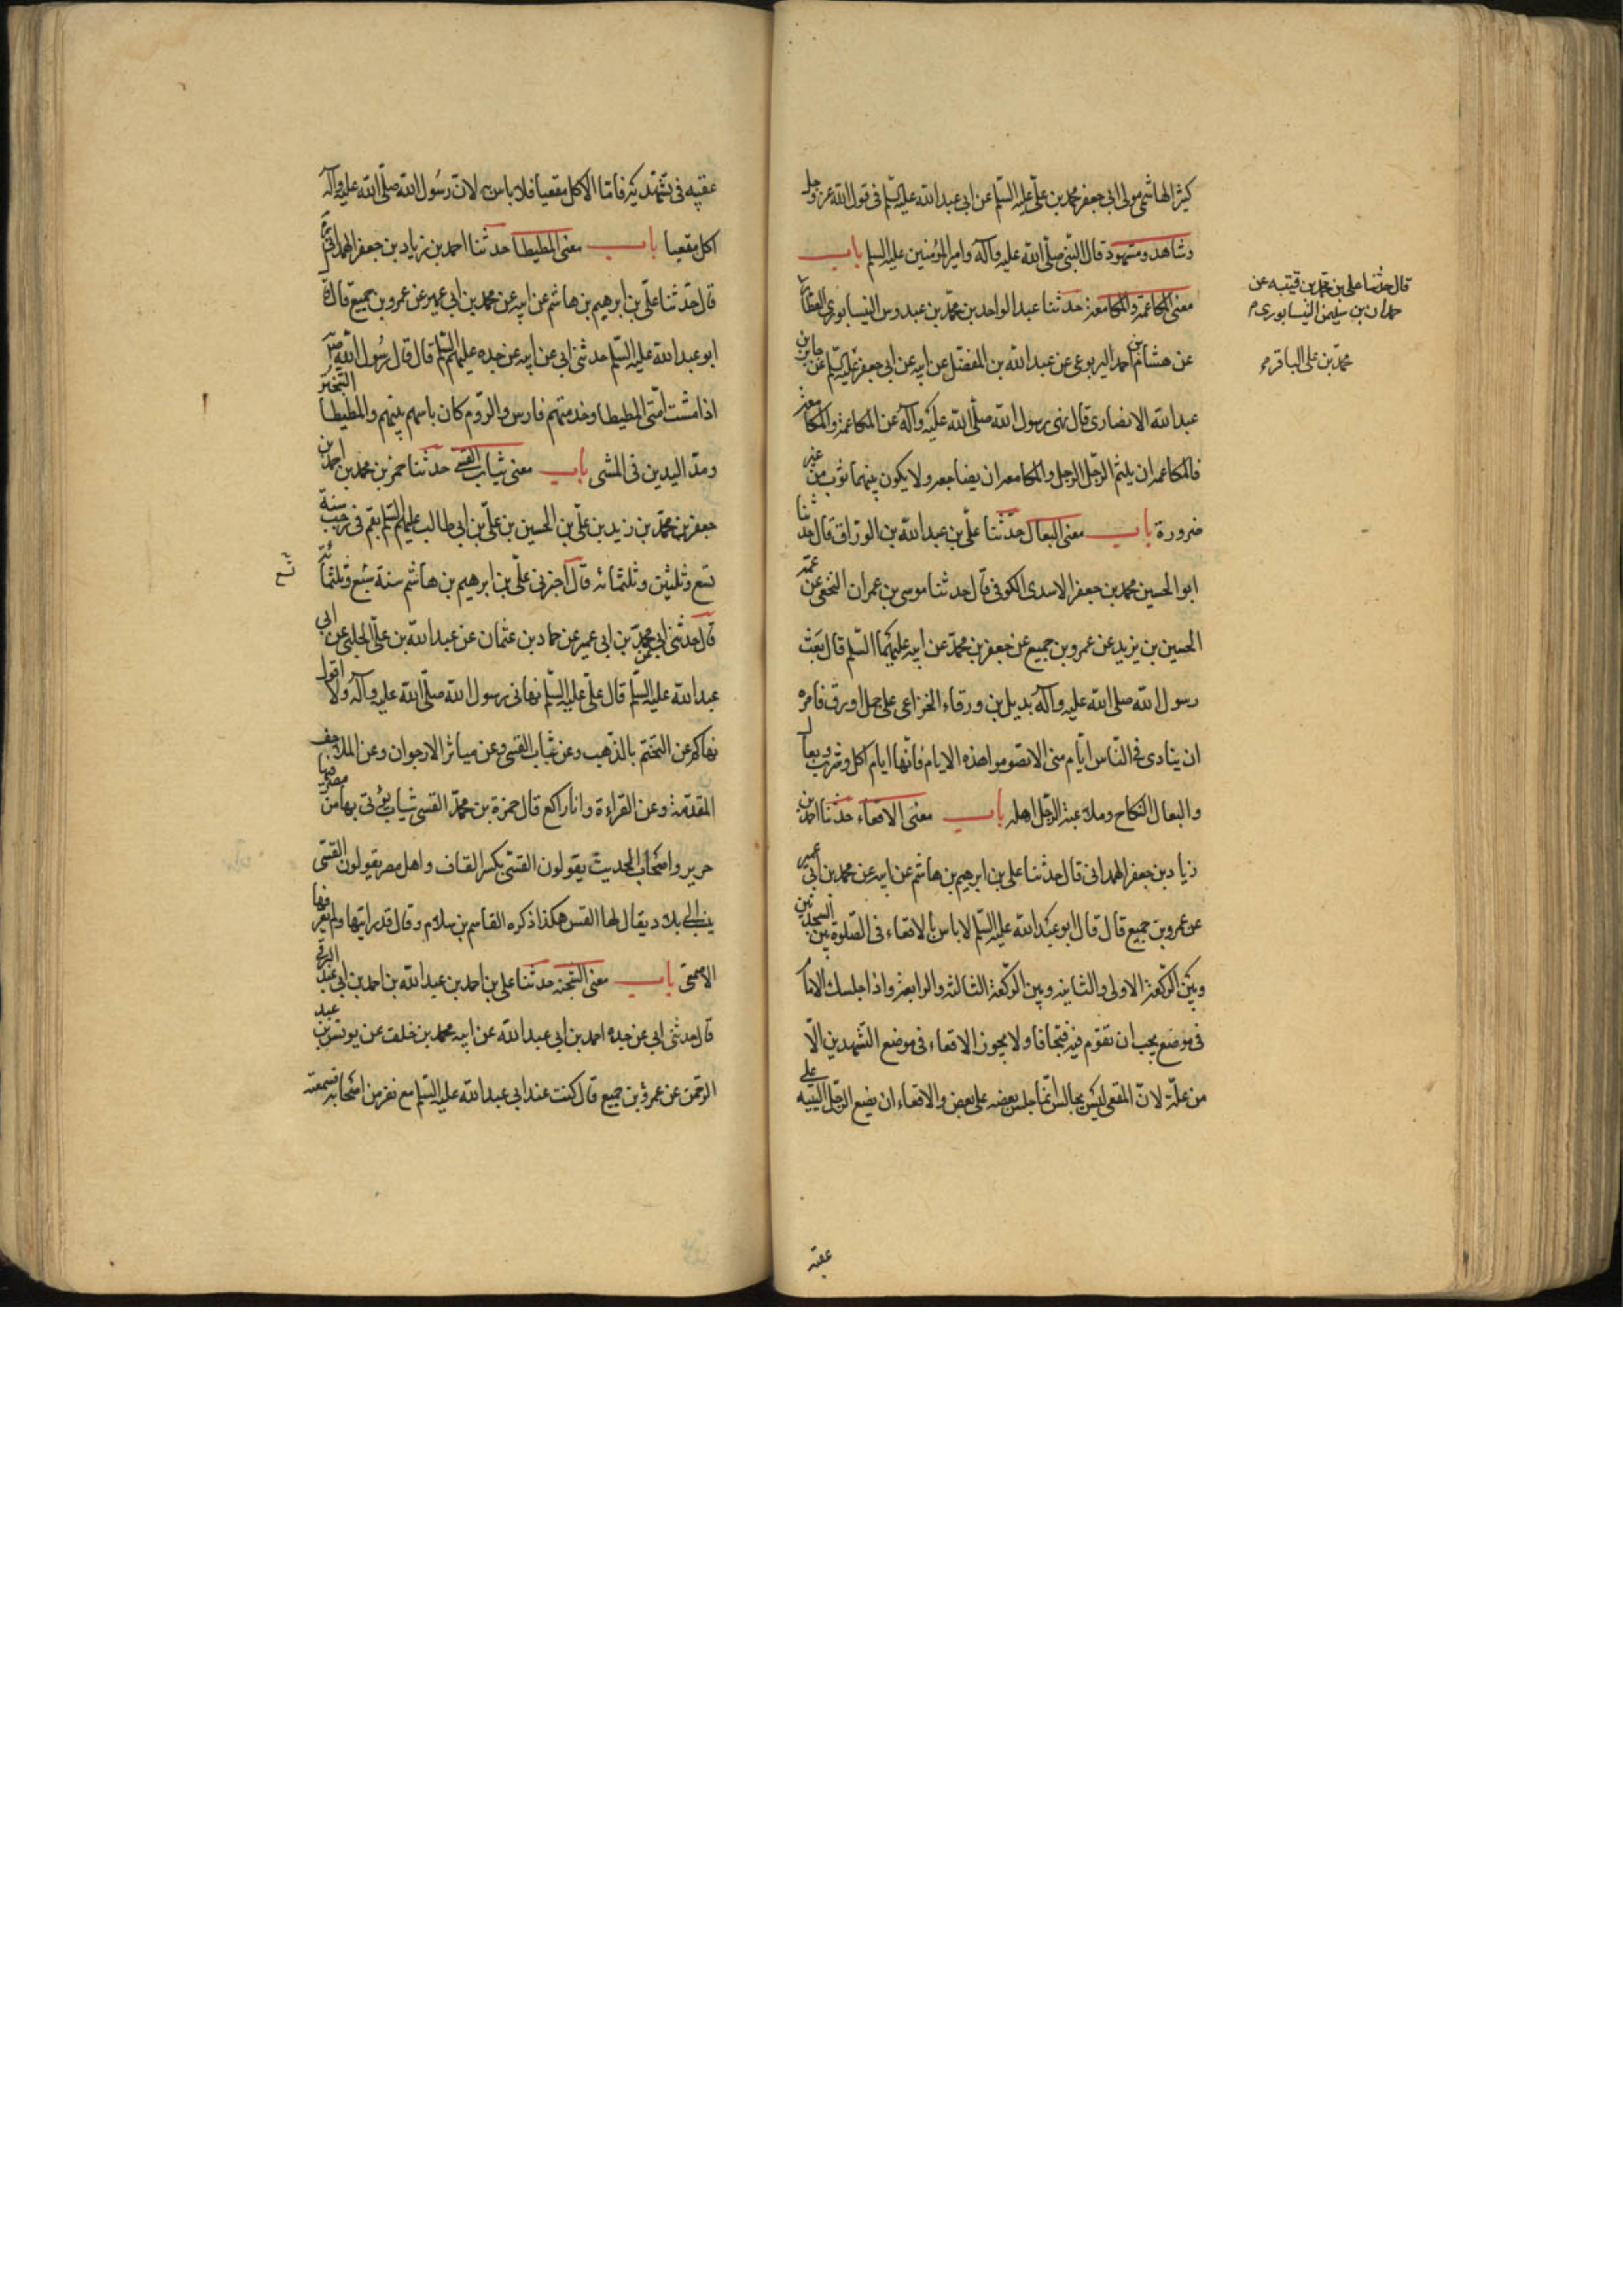 كثير الهاشمي مولى ابي جعفر محمد بن علي عليه السلم عن ابي عبد الله عليه السلم في قول الله عز وجل
وشاهد ومشهود قال النبي صلى الله عليه وآله وامير المؤمنين عليه السلم باب
معنى المكاعمة والمكامعة حدثنا عبد الواحد بن محمد بن عبدوس النيسابوري العطار
عن هشام بن احمد اليربوعي عن عبد الله بن المفضل عن ابيه عن ابي جعفر عليه السلم عن جابر بن
عبد الله الانصاري قال نهى رسول الله صلى الله عليه وآله عن المكاعمة والمكامعة
فالمكاعمة ان يلثم الرجل الرجل والمكامعه ان يضاجعه ولا يكون بينهما ثوب من غير
ضرورة باب معنى البعال حدثنا علي بن عبد الله بن الوراق قال حدثنا
ابو الحسين محمد بن جعفر الاسدي الكوفي قال حدثنا موسى بن عمران النخعي عن عمه
الحسين بن يزيد عن عمرو بن جميع عن جعفر بن محمد عن ابيه عليهما السلم قال بعث
رسول الله صلى الله عليه وآله بديل بن ورقاء الخزاعي على جمل اورق فامره
ان ينادي في الناس ايام منى الا تصوموا هذه الايام فانها ايام اكل وشرب وبعال
والبعال النكاح وملاعبة الرجل اهله باب معنى الاقعاء حدثنا احمد بن
زياد بن جعفر الهمداني قال حدثنا علي بن ابرهيم بن هاشم عن ابيه عن محمد بن ابي عمير
عن عمرو بن جميع قال قال ابو عبد الله عليه السلم لا باس بالاقعاء في الصلوة بين السجدتين
وبين الركعة الاولى والثانيه وبين الركعة الثالثه والرابعة واذا اجلسك الامام
في موضع يجب ان تقوم فيه فتجافا ولا يجوز الاقعاء في موضع التشهدين الا
من علة لان المقعي ليس بجالس انما جلس بعضه على بعض والاقعاء ان يضع الرجل اليتيه على
عقبيه
قال حدثنا علي بن محمد بن قتيبه عن
حمدان بن سليمن النيسابوري
محمد بن علي الباقر ع
عقبيه في تشهديه فاما الاكل مقعيا فلا باس به لان رسول الله صلى الله عليه وآله
اكل مقعيا باب معنى المطيطا حدثنا احمد بن زياد بن جعفر الهمداني
قال حدثنا علي بن ابرهيم بن هاشم عن ابيه عن محمد بن ابي عمير عن عمرو بن جميع قال قال
ابو عبد الله عليه السلم حدثني ابي عن ابيه عن جده عليهم السلم قال قال رسول الله ص
اذا مشت امتي المطيطا وخدمتهم فارس والروم كان باسهم بينهم والمطيطا التبختر
ومد اليدين في المشي باب معنى ثياب القسي حدثنا حمزة بن محمد بن احمد بن
جعفر بن محمد بن زيد بن علي بن الحسين بن علي بن ابي طالب عليهم السلم بقم في رجب سنة
تسع وثلثين وثلثمائه قال اخبرني علي بن ابرهيم بن هاشم سنة سبع وثلثمائة
تسع
قال حدثني ابي عن محمد بن ابي عمير عن حماد بن عثمان عن عبيد الله بن علي الحلبي عن ابي
عبد الله عليه السلم قال علي عليه السلم نهاني رسول الله صلى الله عليه وآله ولا اقول
نهاكم عن التختم بالذهب وعن ثياب القسي وعن مياثر الارجوان وعن الملاحف
المفدمة وعن القراءة وانا راكع قال حمزة بن محمد القسي ثياب يؤتى بها من مصر فيها
حرير واصحاب الحديث يقولون القسي بكسر القاف واهل مصر يقولون القسي
ينسب الى بلاد يقال لها القس هكذا ذكره القاسم بن سلام وقال قد رايتها ولم يعرفها
الاصمعي باب معنى الشجنه حدثنا علي بن احمد بن عبد الله بن احمد بن ابي عبد الله البرقي
قال حدثني ابي عن جده احمد بن ابي عبد الله عن ابيه محمد بن خلف عن يونس بن عبد
الرحمن عن عمرو بن جميع قال كنت عند ابي عبد الله عليه السلم مع نفر من اصحابه فسمعته